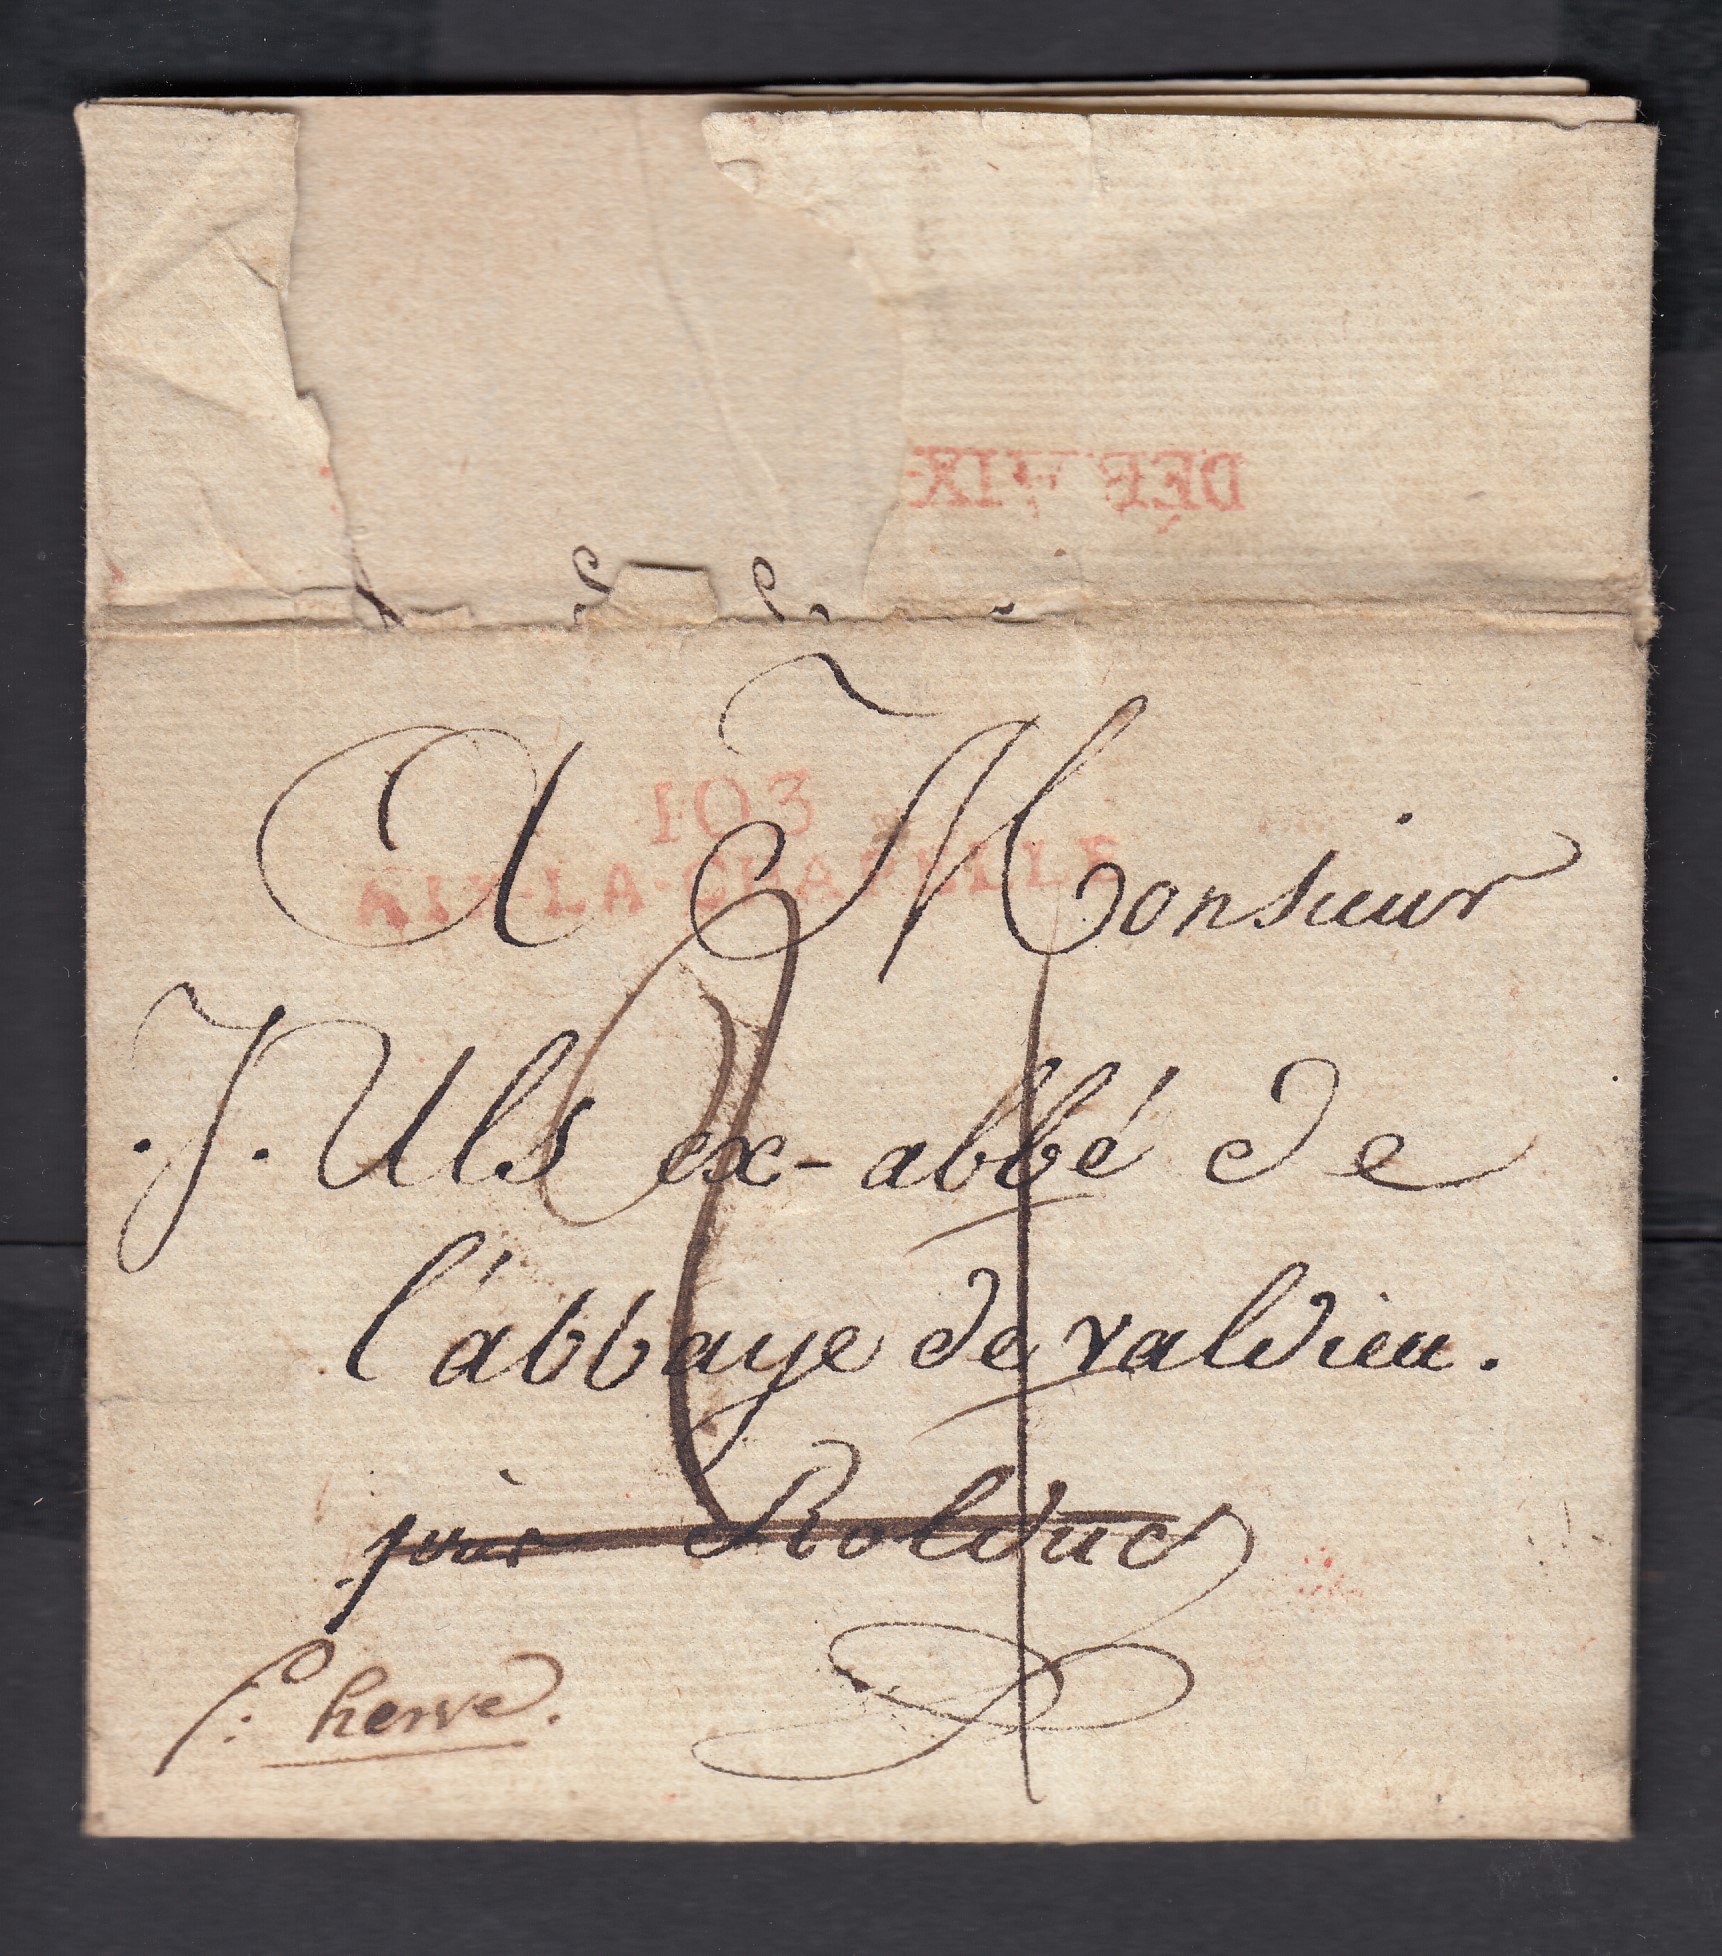 DÉB. AIX-
103
AIX-LA-CHAPELLE
A Monsieur
.J. Uls ex-abbé de
l'abbaye de valdieu.
pour Rolduc
herve.